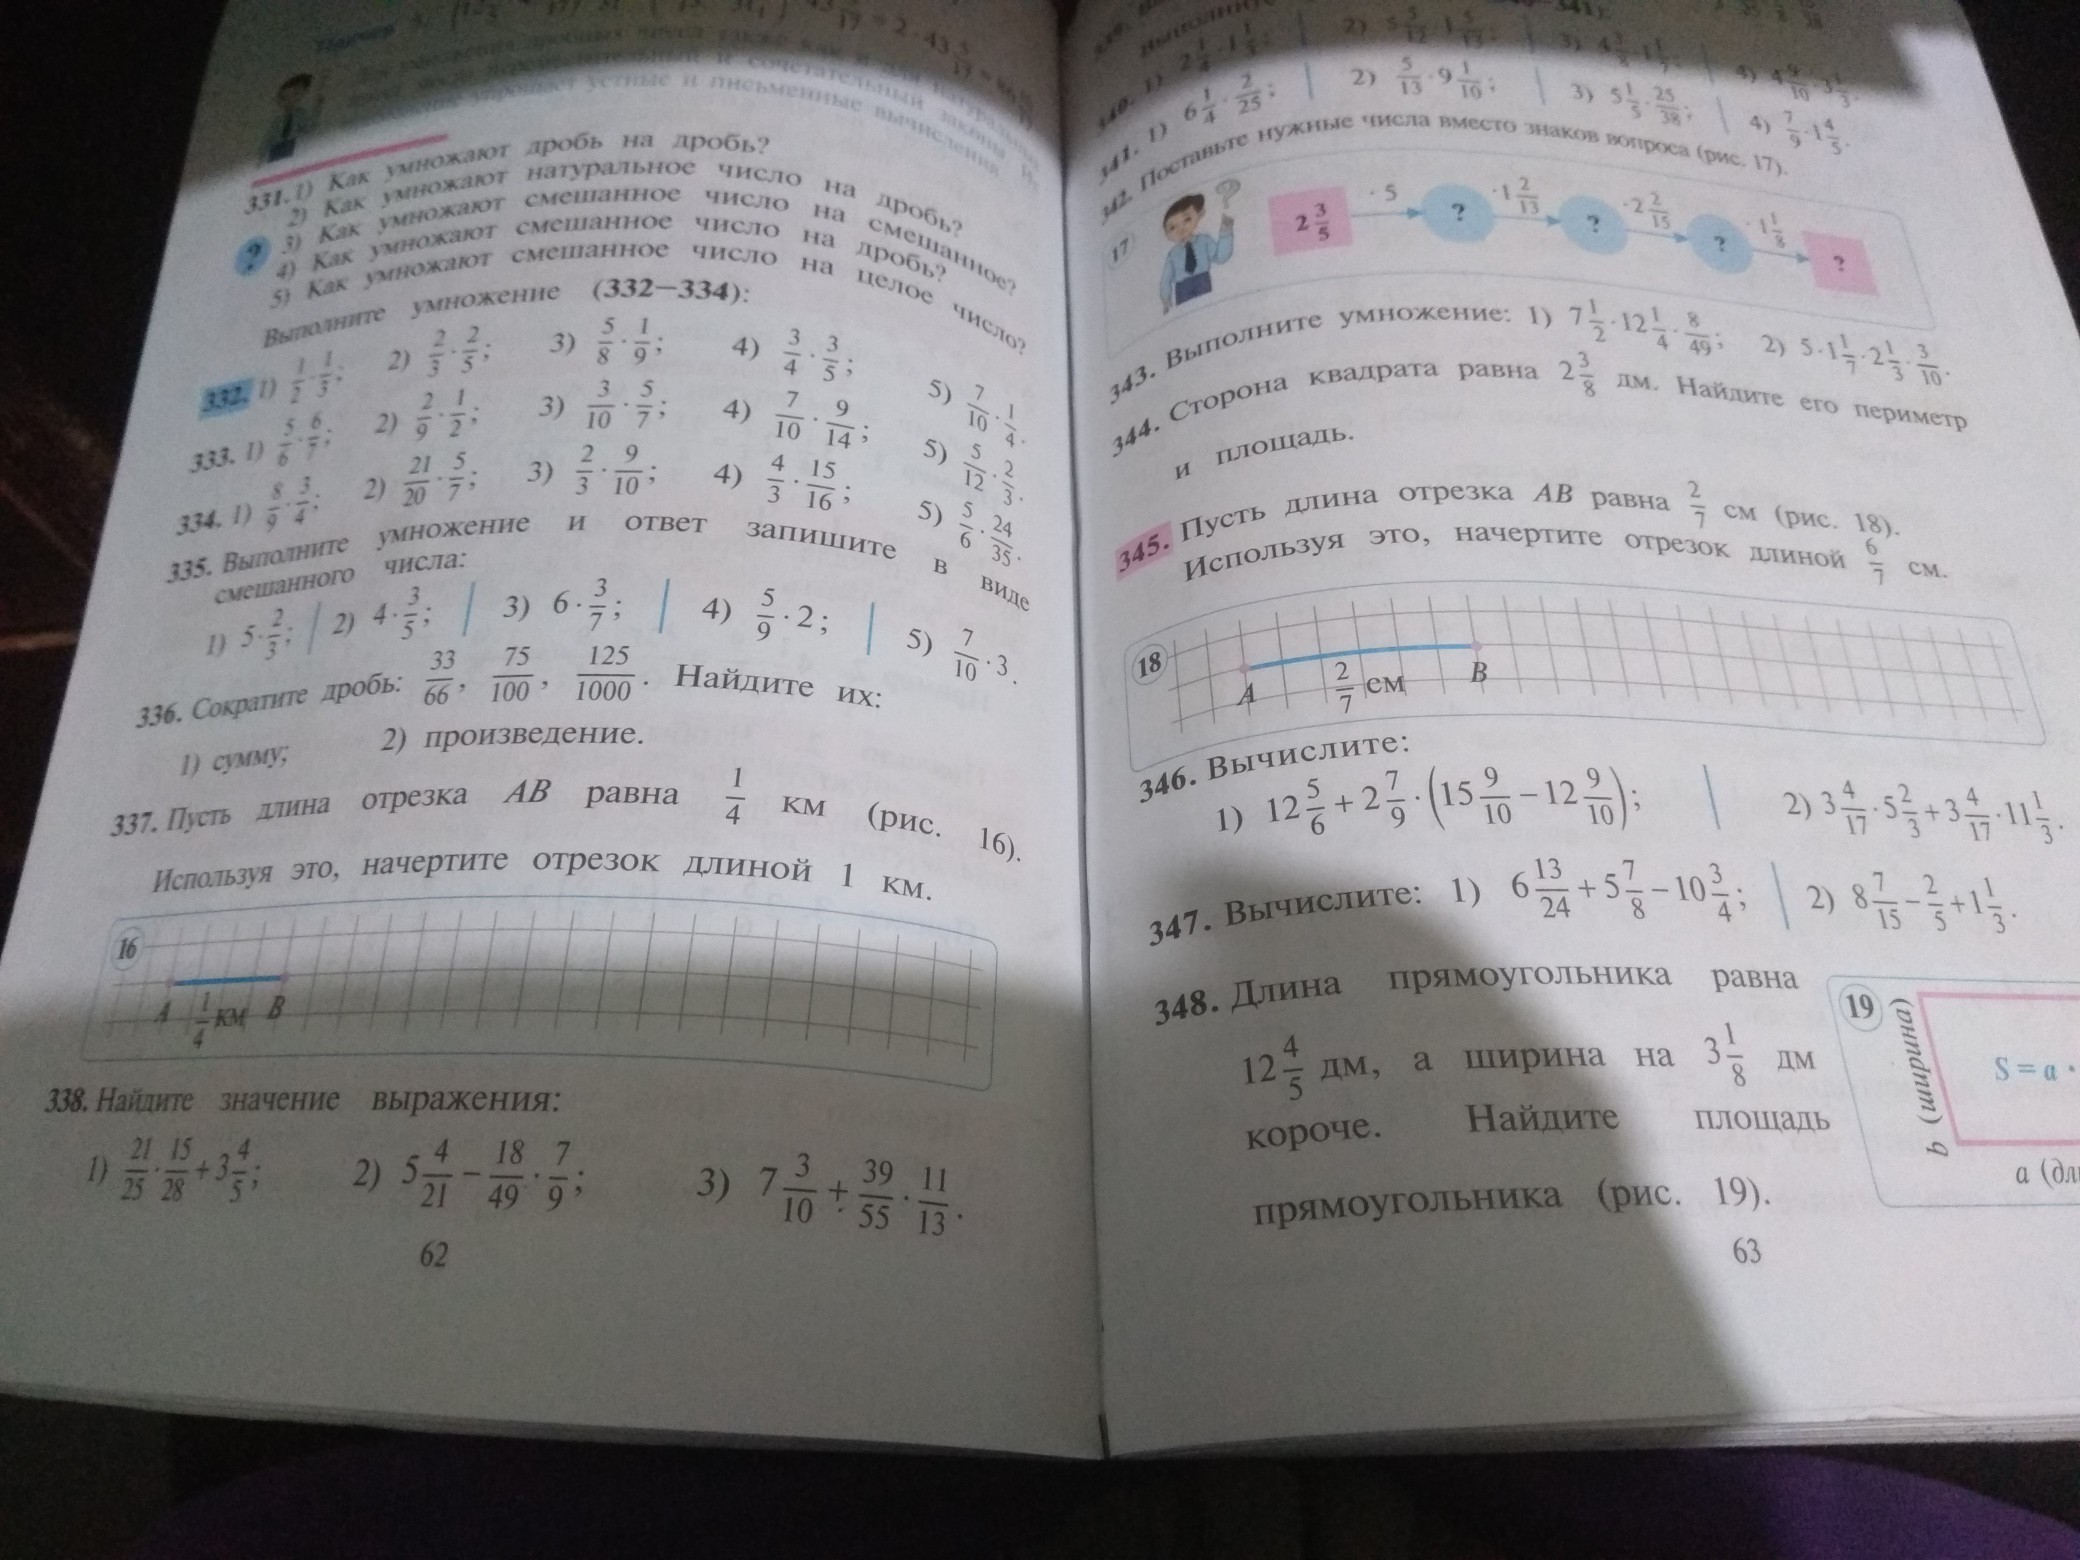 331. 1) Как умножают дробь на дробь?
2) Как умножают натуральное число на дробь?
3) Как умножают смешанное число на смешанное?
4) Как умножают смешанное число на дробь?
5) Как умножают смешанное число на целое число?
?
Выполните умножение (332—334):
332. 1) 1/2 · 1/3; 2) 2/3 · 2/5; 3) 5/8 · 1/9; 4) 3/4 · 3/5; 5) 7/10 · 1/4.
333. 1) 5/6 · 6/7; 2) 2/9 · 1/2; 3) 3/10 · 5/7; 4) 7/10 · 9/14; 5) 5/12 · 2/3.
334. 1) 8/9 · 3/4; 2) 21/20 · 5/7; 3) 2/3 · 9/10; 4) 4/3 · 15/16; 5) 5/6 · 24/35.
335. Выполните умножение и ответ запишите в виде
смешанного числа:
1) 5 · 2/3; 2) 4 · 3/5; 3) 6 · 3/7; 4) 5/9 · 2; 5) 7/10 · 3.
336. Сократите дробь: 33/66, 75/100, 125/1000. Найдите их:
1) сумму; 2) произведение.
337. Пусть длина отрезка AB равна 1/4 км (рис. 16).
Используя это, начертите отрезок длиной 1 км.
16
A 1/4 км B
338. Найдите значение выражения:
1) 21/25 · 15/28 + 3 4/5; 2) 5 4/21 − 18/49 · 7/9; 3) 7 3/10 + 39/55 · 11/13.
62
340. 1) 2 1/4 · 1 1/3; 2) 5 5/12 · 1 5/13;
341. 1) 6 1/4 · 2/25; 2) 5/13 · 9 1/10; 3) 5 1/5 · 25/38; 4) 7/9 · 1 4/5.
342. Поставьте нужные числа вместо знаков вопроса (рис. 17).
17
?
2 3/5 · 5 ? · 1 2/13 ? · 2 2/15 ? · 1 1/8 ?
343. Выполните умножение: 1) 7 1/2 · 12 1/4 · 8/49; 2) 5 · 1 1/7 · 2 1/3 · 3/10.
344. Сторона квадрата равна 2 3/8 дм. Найдите его периметр
и площадь.
345. Пусть длина отрезка AB равна 2/7 см (рис. 18).
Используя это, начертите отрезок длиной 6/7 см.
18
A 2/7 см B
346. Вычислите:
1) 12 5/6 + 2 7/9 · (15 9/10 − 12 9/10); 2) 3 4/17 · 5 2/3 + 3 4/17 · 11 1/3.
347. Вычислите: 1) 6 13/24 + 5 7/8 − 10 3/4; 2) 8 7/15 − 2/5 + 1 1/3.
348. Длина прямоугольника равна
12 4/5 дм, а ширина на 3 1/8 дм
короче. Найдите площадь
прямоугольника (рис. 19).
19
b (ширина)
S = a ·
a (дл
63